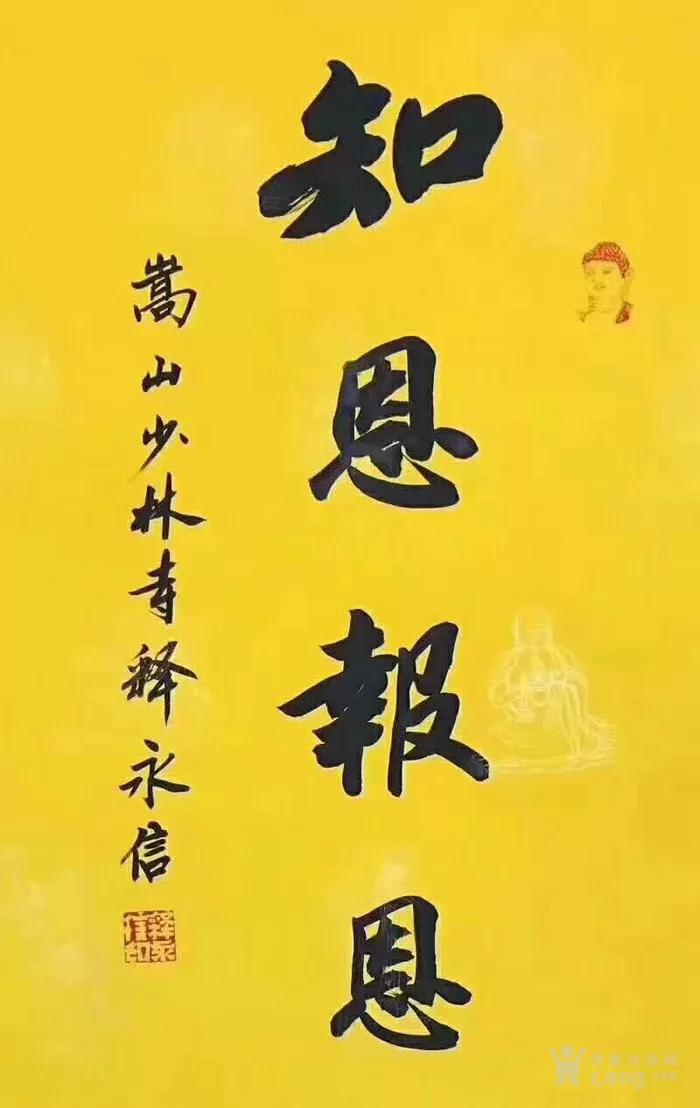 知恩報恩
嵩山少林寺释永信
释永信印